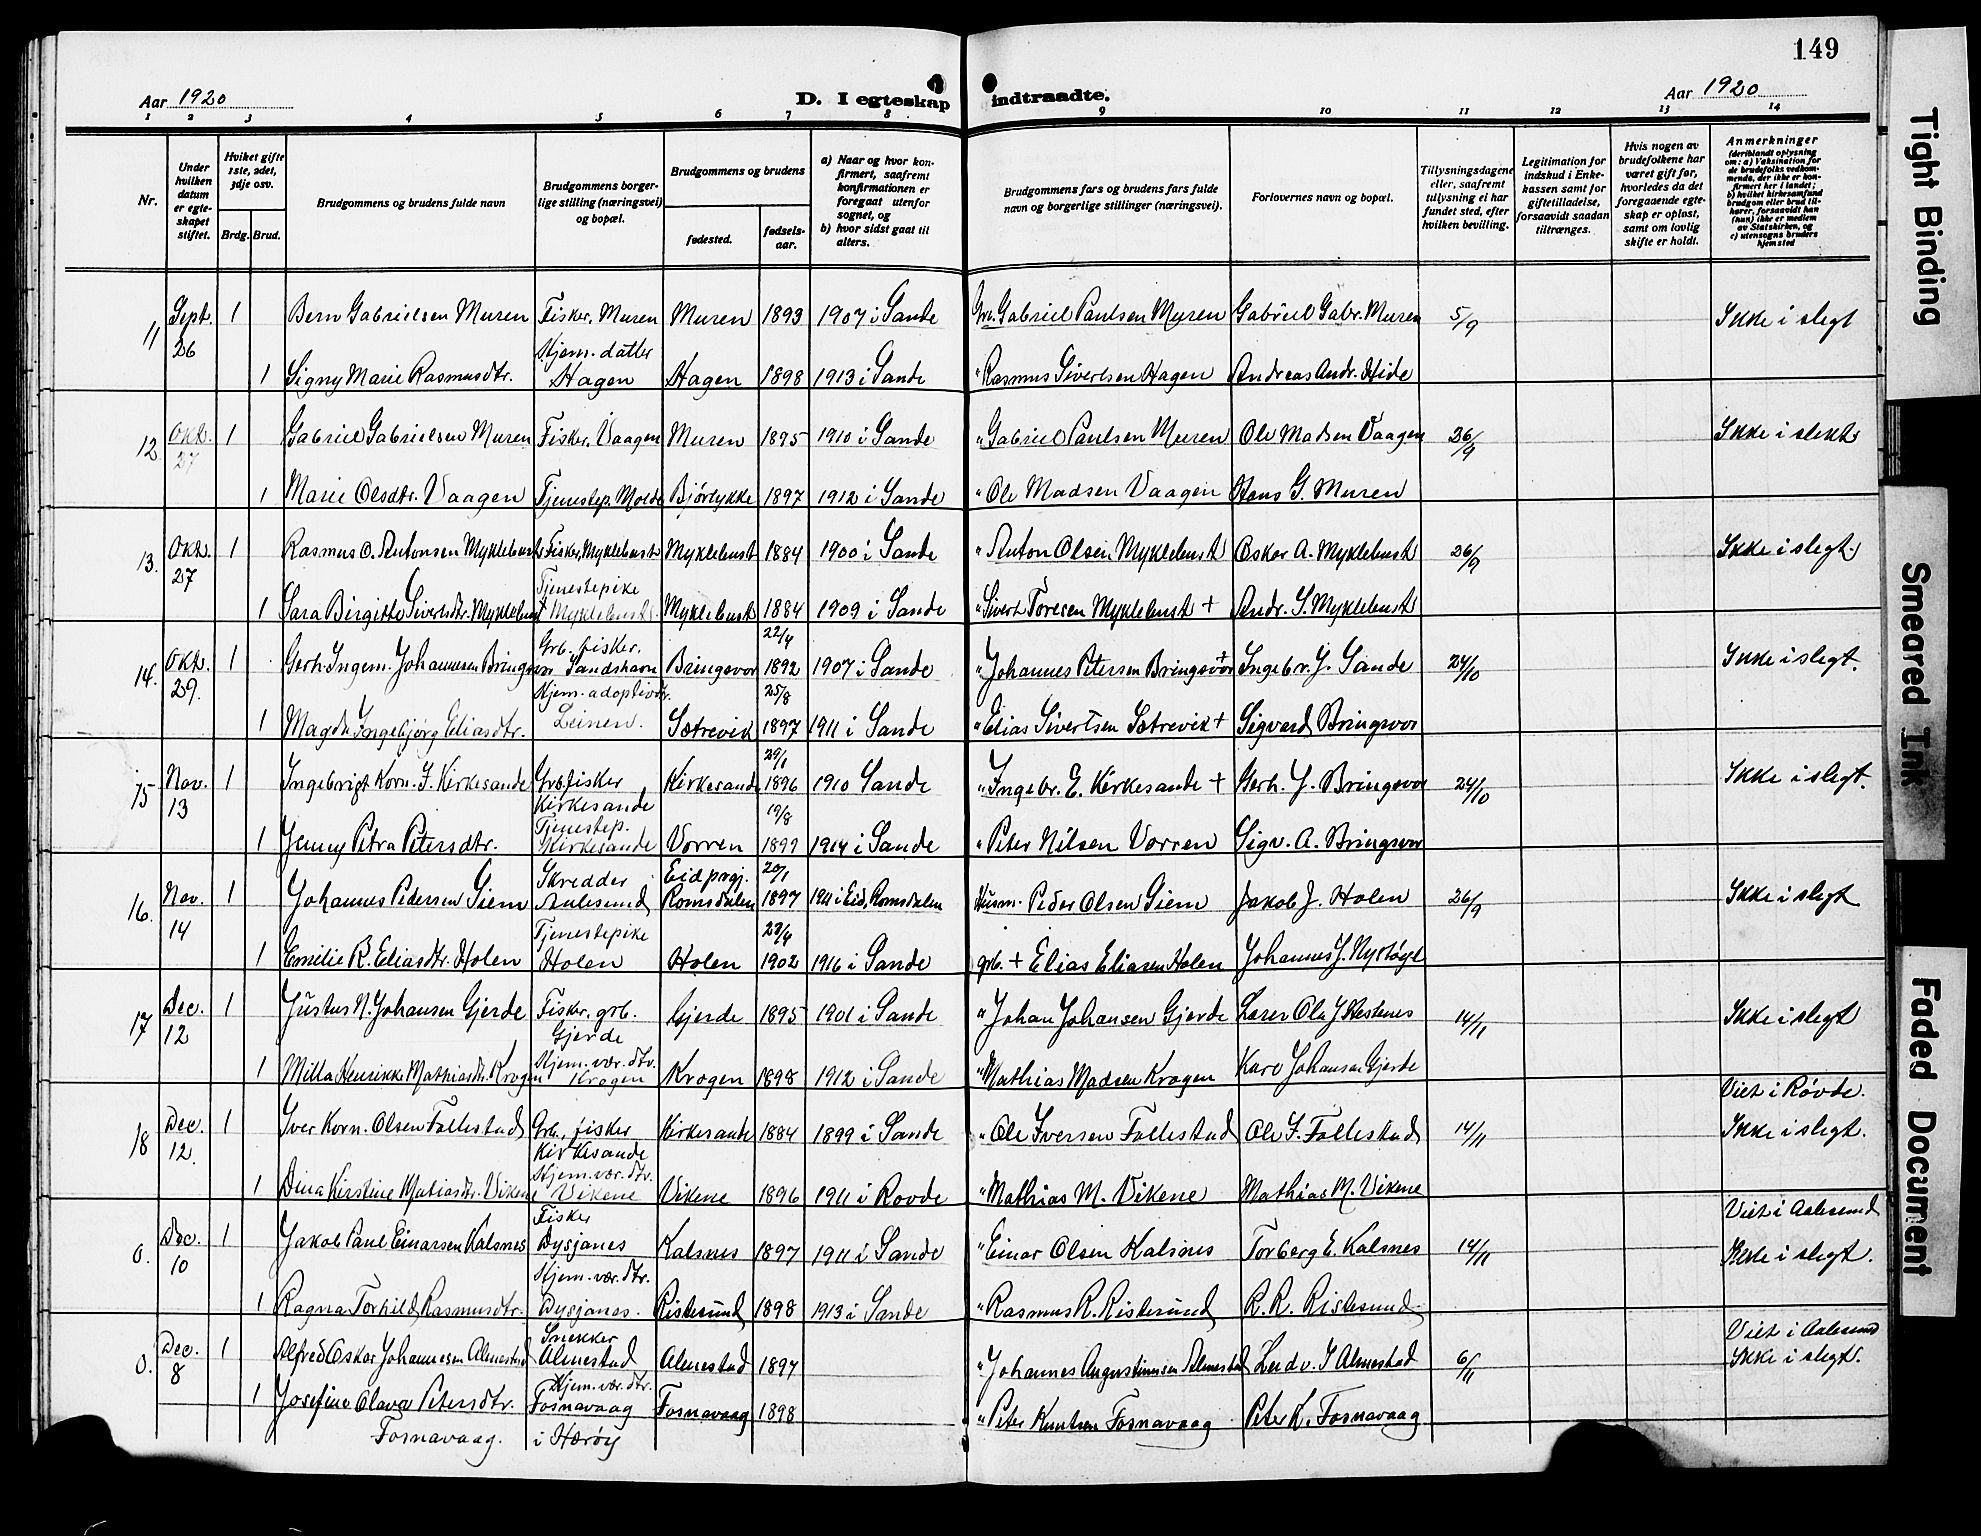 149
Aar 1920
D. I egteskap indtraadte.
Aar 1920
1 2 3 4 5 6 7 8 9 10 11 12 13 14
Nr.
Under hvilken datum er egteskapet stiftet.
Hvilket gifte 1ste, 2det, 3dje osv.
Brdg. Brud.
Brudgommens og brudens fulde navn
Brudgommens borgerlige stilling (næringsvei) og bopæl.
Brudgommens og brudens
fødested.
fødselsaar.
a) Naar og hvor konfirmert, saafremt konfirmationen er foregaat utenfor sognet, og
b) hvor sidst gaat til alters.
Brudgommens fars og brudens fars fulde navn og borgerlige stillinger (næringsvei).
Forlovernes navn og bopæl.
Tillysningsdagene eller, saafremt tillysning ei har fundet sted, efter hvilken bevilling.
Legitimation for indskud i Enkekassen samt for giftetilladelse, forsaavidt saadan tiltrænges.
Hvis nogen av brudefolkene har været gift før, hvorledes da det foregaaende egteskap er opløst, samt om lovlig skifte er holdt.
Anmerkninger
(deriblandt oplysning om: a) Vaksination for de brudefolks vedkommende, der ikke er konfirmert her i landet; b) hvilket kirkesamfund brudgom eller brud tilhører, forsaavidt han (hun) ikke er medlem av Statskirken, og c) utensogns bruders hjemsted
11 Sept. 26 1 Bern Gabrielsen Muren Fisker, Muren Muren 1893 1907 i Sande Grb. Gabriel Paulsen Muren Gabriel Gabr. Muren 5/9 Ikke i slegt
1 Signy Marie Rasmusdtr. Hjem. datter Hagen Hagen 1898 1913 i Sande " Rasmus Sivertsen Hagen Andreas Andr. Hide
12 Okt. 27 1 Gabriel Gabrielsen Muren Fisker, Vaagen Muren 1895 1910 i Sande " Gabriel Paulsen Muren Ole Madsen Vaagen 26/9 Ikke i slekt
1 Marie Olsdtr. Vaagen Tjenestep. Molde Bjørlykke 1897 1912 i Sande " Ole Madsen Vaagen Hans G. Muren
13. Okt. 27 1 Rasmus O. Antonsen Myklebust Fisker, Myklebust Myklebust 1884 1900 i Sande " Anton Olsen Myklebust Oskar A. Myklebust 26/9 Ikke i slegt.
1 Sara Birgitte Sivertsdtr. Myklebust Tjenestepike Myklebust Myklebust 1884 1909 i Sande " Sivert Toresen Myklebust + Andr. S. Myklebust
14. Okt. 29. 1 Gerh. Ingem. Johannesen Bringsvor Grb. fisker, Sandshavn Bringsvor 22/4 1892 1907 i Sande " Johannes Petersen Bringsvor + Ingebr. J. Sande 24/10 Ikke i slegt.
1 Magda Ingebjørg Eliasdtr. Hjem. adoptivdtr. Leinen. Sætrevik 25/8 1897 1911 i Sande " Elias Sivertsen Sætrevik + Sigvard Bringsvor
15 Nov. 13 1 Ingebrigt Korn. I. Kirkesande Grb. fisker Kirkesande Kirkesande 29/1 1896 1910 Sande " Ingebr. E. Kirkesande + Gerh. J. Bringsvor 24/10 Ikke i slegt.
1 Jenny Petra Petersdtr. Tjenestep. Kirkesande Vorren 19/8 1899 1914 i Sande " Peter Nilsen Vorren Sigv. A. Bringsvor
16. Nov. 14 1 Johannes Pedersen Giem Skredder Aalesund Eid prgj. Romsdalen 20/1 1897 1911 i Eid, Romsdalen Husm. Peder Olsen Giem Jakob J. Holen 26/9 Ikke i slegt
1 Emilie R. Eliasdtr. Holen Tjenestepike Holen Holen 1902 1916 i Sande grb. + Elias Eliasen Holen Johannes J. Nystøyl
17 Dec. 12 1 Justus N. Johansen Gjerde Fisker, grb. Gjerde Gjerde 1895 1901 i Sande " Johan Johansen Gjerde Lærer Ole J. Hestenes 14/11 Ikke i slegt
1 Milla Henrikke Mathiasdtr. Krogen Hjem. vær. dtr. Krogen Krogen 1898 1912 i Sande " Mathias Madsen Krogen Kare Johansen Gjerde
18 Dec. 12. 1 Iver Korn. Olsen Follestad Grb., fisker Kirkesande Kirkesande 1884 1899 i Sande " Ole Iversen Follestad Ole I. Follestad 14/11 Viet i Røvde. Ikke i slegt.
1 Dina Kirstine Matiasdtr. Vikene Hjem. vær. dtr. Vikene Vikene 1896 1911 i Rovde " Mathias M. Vikene Mathias M. Vikene
0. Dec. 10 1 Jakob Paul Einarsen Kalsnes Fisker Dysjanes Kalsnes 1897 1911 i Sande " Einar Olsen Kalsnes Torberg E. Kalsnes 14/11 Viet i Aalesund Ikke i slegt.
1 Ragna Torhild Rasmusdtr. Hjem. vær. dtr. Dysjanes. Ristesund 1898 1913 i Sande " Rasmus R. Ristesund R. R. Ristesund
0. Dec. 8 1 Alfred Oskar Johannesen Almestad Snekker Almestad Almestad 1897 " Johannes Augustinusen Almestad Ludv. J. Almestad 6/11 Viet i Aalesund Ikke i slegt.
1 Josefine Olava Petersdtr. Fosnavaag. Hjem. vær. dtr. Fosnavaag i Herøy Fosnavaag 1898 " Peter Knutsen Fosnavaag Peter K. Fosnavaag
Tight Binding
Smeared Ink
Faded Document